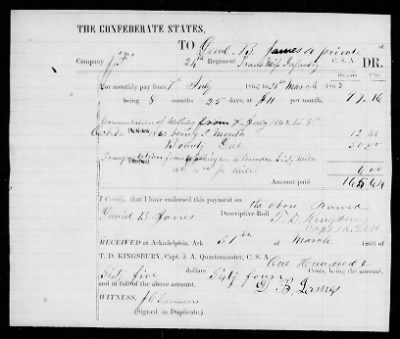 THE CONFEDERATE STATES,
TO David B. James a private
Company "F" 24th Regiment Infantry C. S. A. DR.
For monthly pay from 7th July 1862 to 31st March 1863
being 8 months 25 days, at $11 per month, 97.16
Commutation of clothing from 7th July 1862 to 8th
October 1862 being 3 Month 12.44
Bounty Due 50.00
Transportation from Washington to Camden Sixty Miles
at 10 cts pr mile 6.00
Amount paid 165.64
I Certify, that I have endorsed this payment on the above named
David B James Descriptive Roll T. D. Kingsbury
RECEIVED at Arkadelphia, Ark 31st March 1863 of
T. D. KINGSBURY, Capt. & A. Quartermaster, C. S. A. One Hundred &
Sixty five dollars Sixty four Cents, being the amount,
and in full of the above account. D. B. James
WITNESS.
(Signed in Duplicate.)